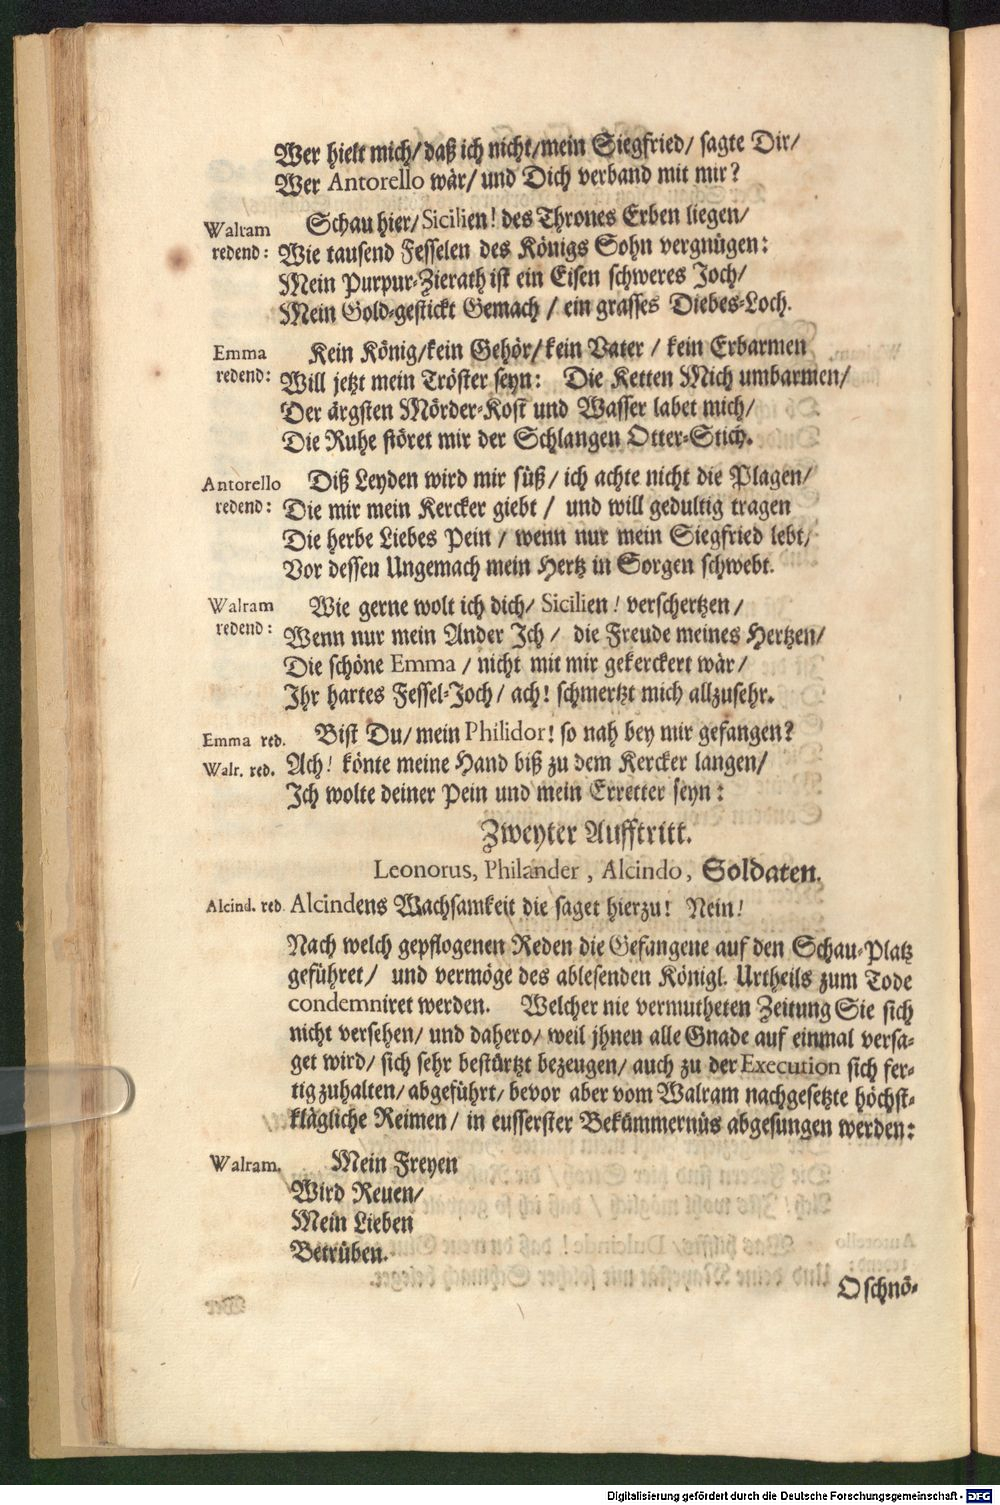 Wer hielt mich/ daß ich nicht/ mein Siegfried/ sagte Dir/
Wer Antorello wär/ und Dich verband mit mir?
Walram redend: Schau hier/ Sicilien! des Thrones Erben liegen/
Wie tausend Fesselen des Königs Sohn vergnügen:
Mein Purpur-Zierath ist ein Eisen schweres Joch/
Mein Gold-gestickt Gemach / ein grasses Diebes-Loch.
Emma redend: Kein König/ kein Gehör/ kein Vater / kein Erbarmen
Will jetzt mein Tröster seyn: Die Ketten Mich umbarmen/
Der ärgsten Mörder-Kost und Wasser labet mich/
Die Ruhe störet mir der Schlangen Otter-Stich.
Antorello redend: Diß Leyden wird mir süß/ ich achte nicht die Plagen/
Die mir mein Kercker giebt / und will gedultig tragen
Die herbe Liebes Pein / wenn nur mein Siegfried lebt/
Vor dessen Ungemach mein Hertz in Sorgen schwebt.
Walram redend: Wie gerne wolt ich dich/ Sicilien! verschertzen /
Wenn nur mein Ander Ich / die Freude meines Hertzen/
Die schöne Emma / nicht mit mir gekerckert wär/
Ihr hartes Fessel-Joch/ ach! schmertzt mich allzusehr.
Emma red. Bist Du/ mein Philidor! so nah bey mir gefangen?
Walr. red. Ach! könte meine Hand biß zu dem Kercker langen/
Ich wolte deiner Pein und mein Erretter seyn:
Zweyter Aufftritt.
Leonorus, Philander, Alcindo, Soldaten.
Alcind. red. Alcindens Wachsamkeit die saget hierzu! Nein!
Nach welch gepflogenen Reden die Gefangene auf den Schau-Platz
geführet/ und vermöge des ablesenden Königl. Urtheils zum Tode
condemniret werden. Welcher nie vermutheten Zeitung Sie sich
nicht versehen/ und dahero/ weil jhnen alle Gnade auf einmal versa-
get wird/ sich sehr bestürtzt bezeugen/ auch zu der Execution sich fer-
tig zuhalten/ abgeführt/ bevor aber vom Walram nachgesetzte höchst-
klägliche Reimen/ in eusserster Bekümmernüs abgesungen werden:
Walram. Mein Freyen
Wird Reuen/
Mein Lieben
Betrüben.
O schnö-
Digitalisierung gefördert durch die Deutsche Forschungsgemeinschaft - DFG